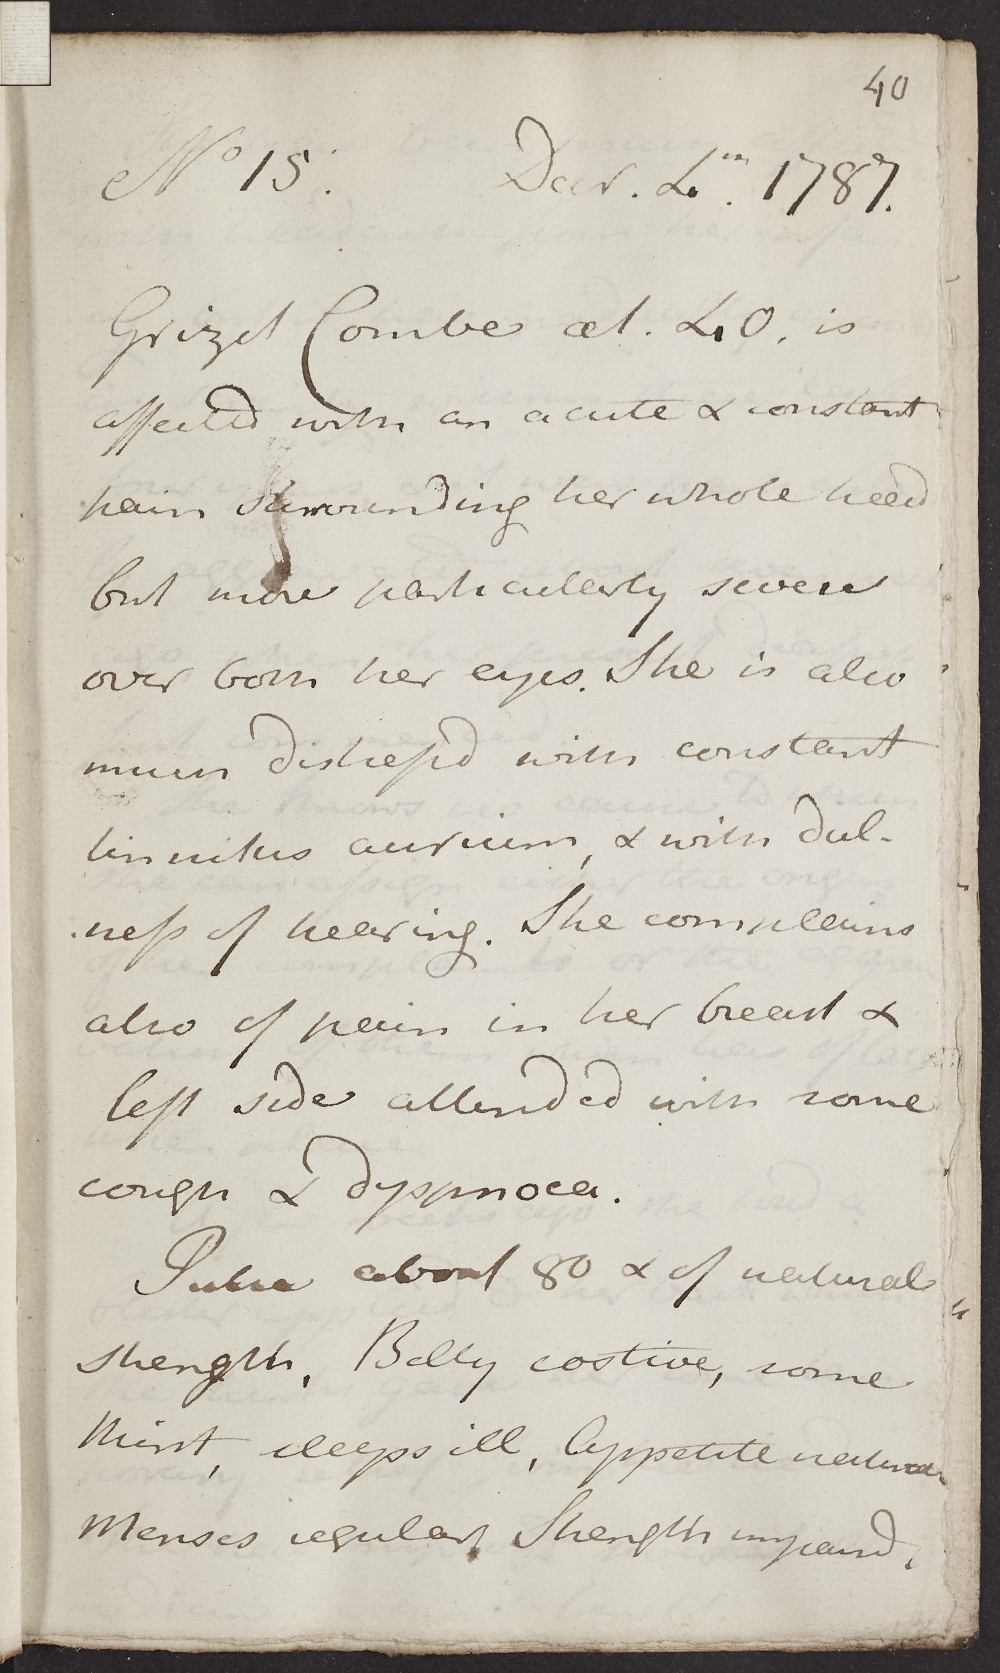 40
No 15. Decr. 4th. 1787.
Grizel Combe æt. 40. is
affected with an acute & constant
pain surrounding her whole head
but more particularly severe
over both her eyes. She is also
much distress'd with constant
tinnitus aurium, & with dul-
ness of hearing. She complains
also of pain in her breast &
left side attended with some
cough & dyspnoea.
Pulse about 80 & of natural
strength, Belly costive, some
thirst, sleeps ill, Appetite natural
Menses regular, Strength impaird.